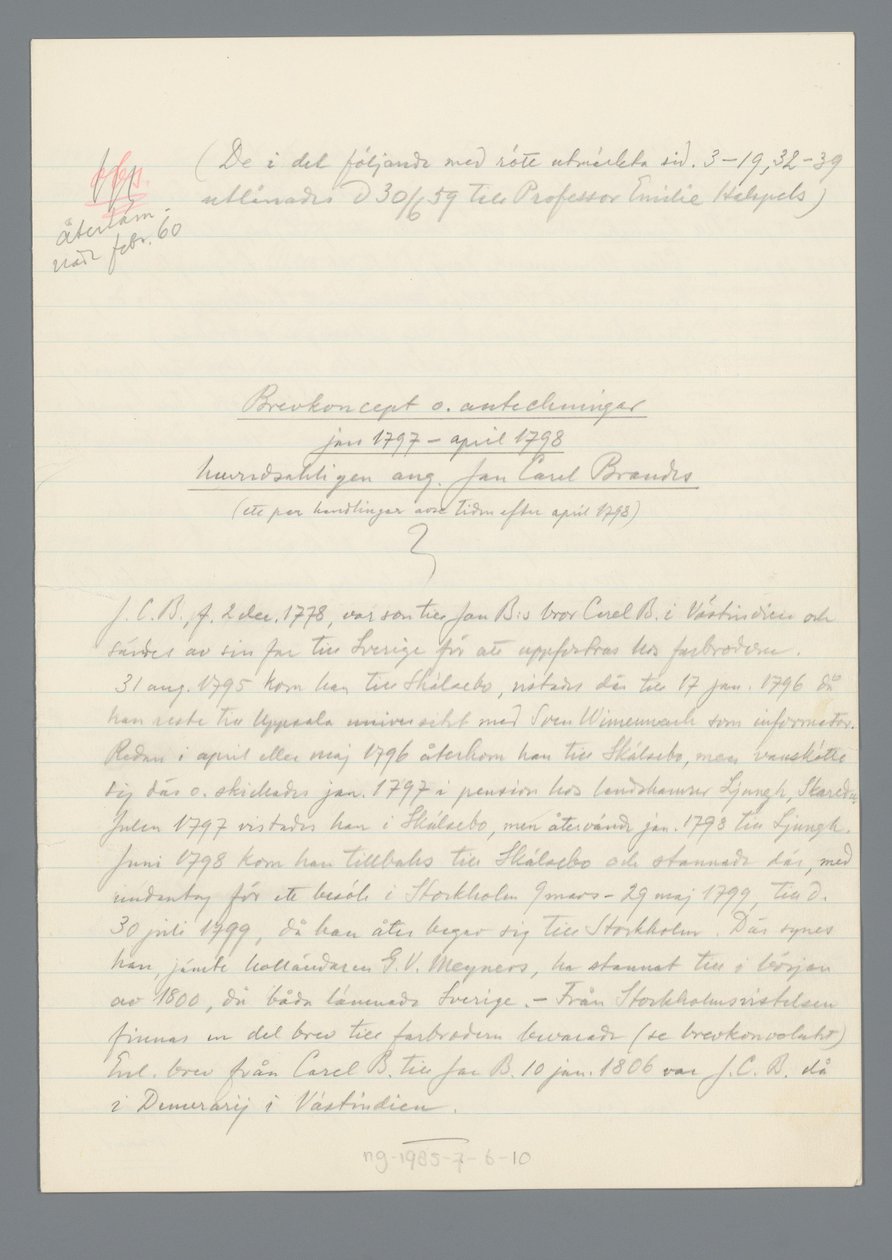 obs.
(De i det följande med rött utmärkta sid. 3-19, 32-39
utlånades d 30/6 59 till Professor Emilie Halspels)
återläm-
nade febr. 60
Brevkoncept o. anteckningar
jan 1797 - april 1798
huvudsakligen ang. Jan Carel Brandes
(ett par handlingar avse tiden efter april 1798)
J. C. B., f. 2 dec. 1778, var son till Jan B:s bror Carel B. i Västindien och
sändes av sin far till Sverige för att uppfostras hos farbrodern.
31 aug. 1795 kom han till Skälsebo, vistades där till 17 jan. 1796 då
han reste till Uppsala universitet med Sven som informator.
Redan i april eller maj 1796 återkom han till Skälsebo, men vanskötte
sig där o. skickades jan. 1797 i pension hos landskamrer Ljungh, Skareda.
Julen 1797 vistades han i Skälsebo, men återvände jan. 1798 till Ljungh.
Juni 1798 kom han tillbaks till Skälsebo och stannade där, med
undantag för ett besök i Stockholm 9 mars - 29 maj 1799, till d.
30 juli 1799, då han åter begav sig till Stockholm. Där synes
han, jämte holländaren G. V. Meyners, ha stannat till i början
av 1800, då båda lämnade Sverige. - Från Stockholmsvistelsen
finnas en del brev till farbrodern bevarade (se brevkonvolutet)
Enl. brev från Carel B. till Jan B. 10 jan. 1806 var J. C. B. då
i Demerarij i Västindien.
ng-1985-7-6-10